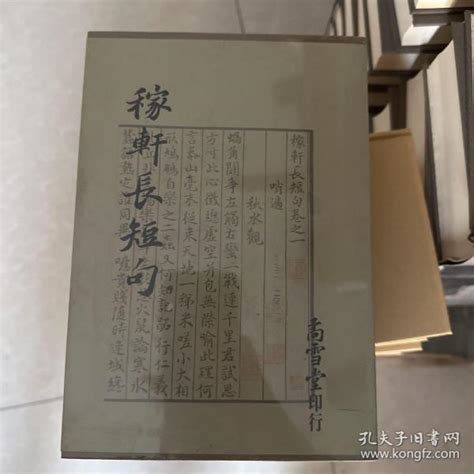 稼軒長短句
稼軒長短句卷之一
哨遍
秋水觀
蝸角鬭爭左觸右蠻一戰連千里君試思
方寸此心微總虛空幷包無際喻此理何
言泰山毫末從來天地一稊米嗟小大相
形鳩鵬自樂之二蟲又何知記跖行仁義
火鼠論寒水
定誰同異
貴賤隨時連城纔
喬雪堂印行
孔夫子旧书网
www.kongfz.com